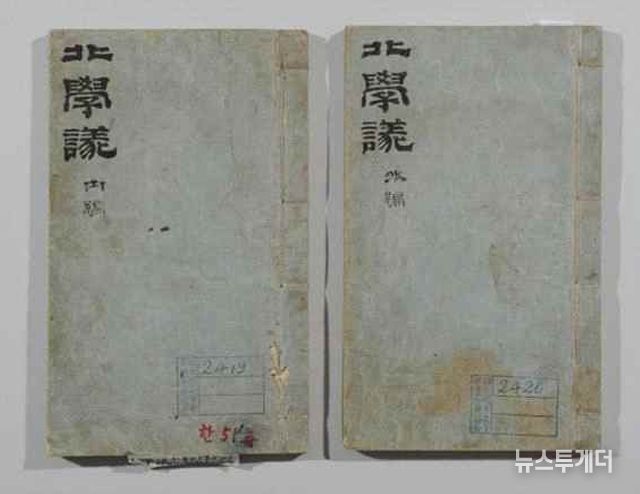 北
學
議
內
編
2419
한51
北
學
議
外
編
2420
뉴스투게더